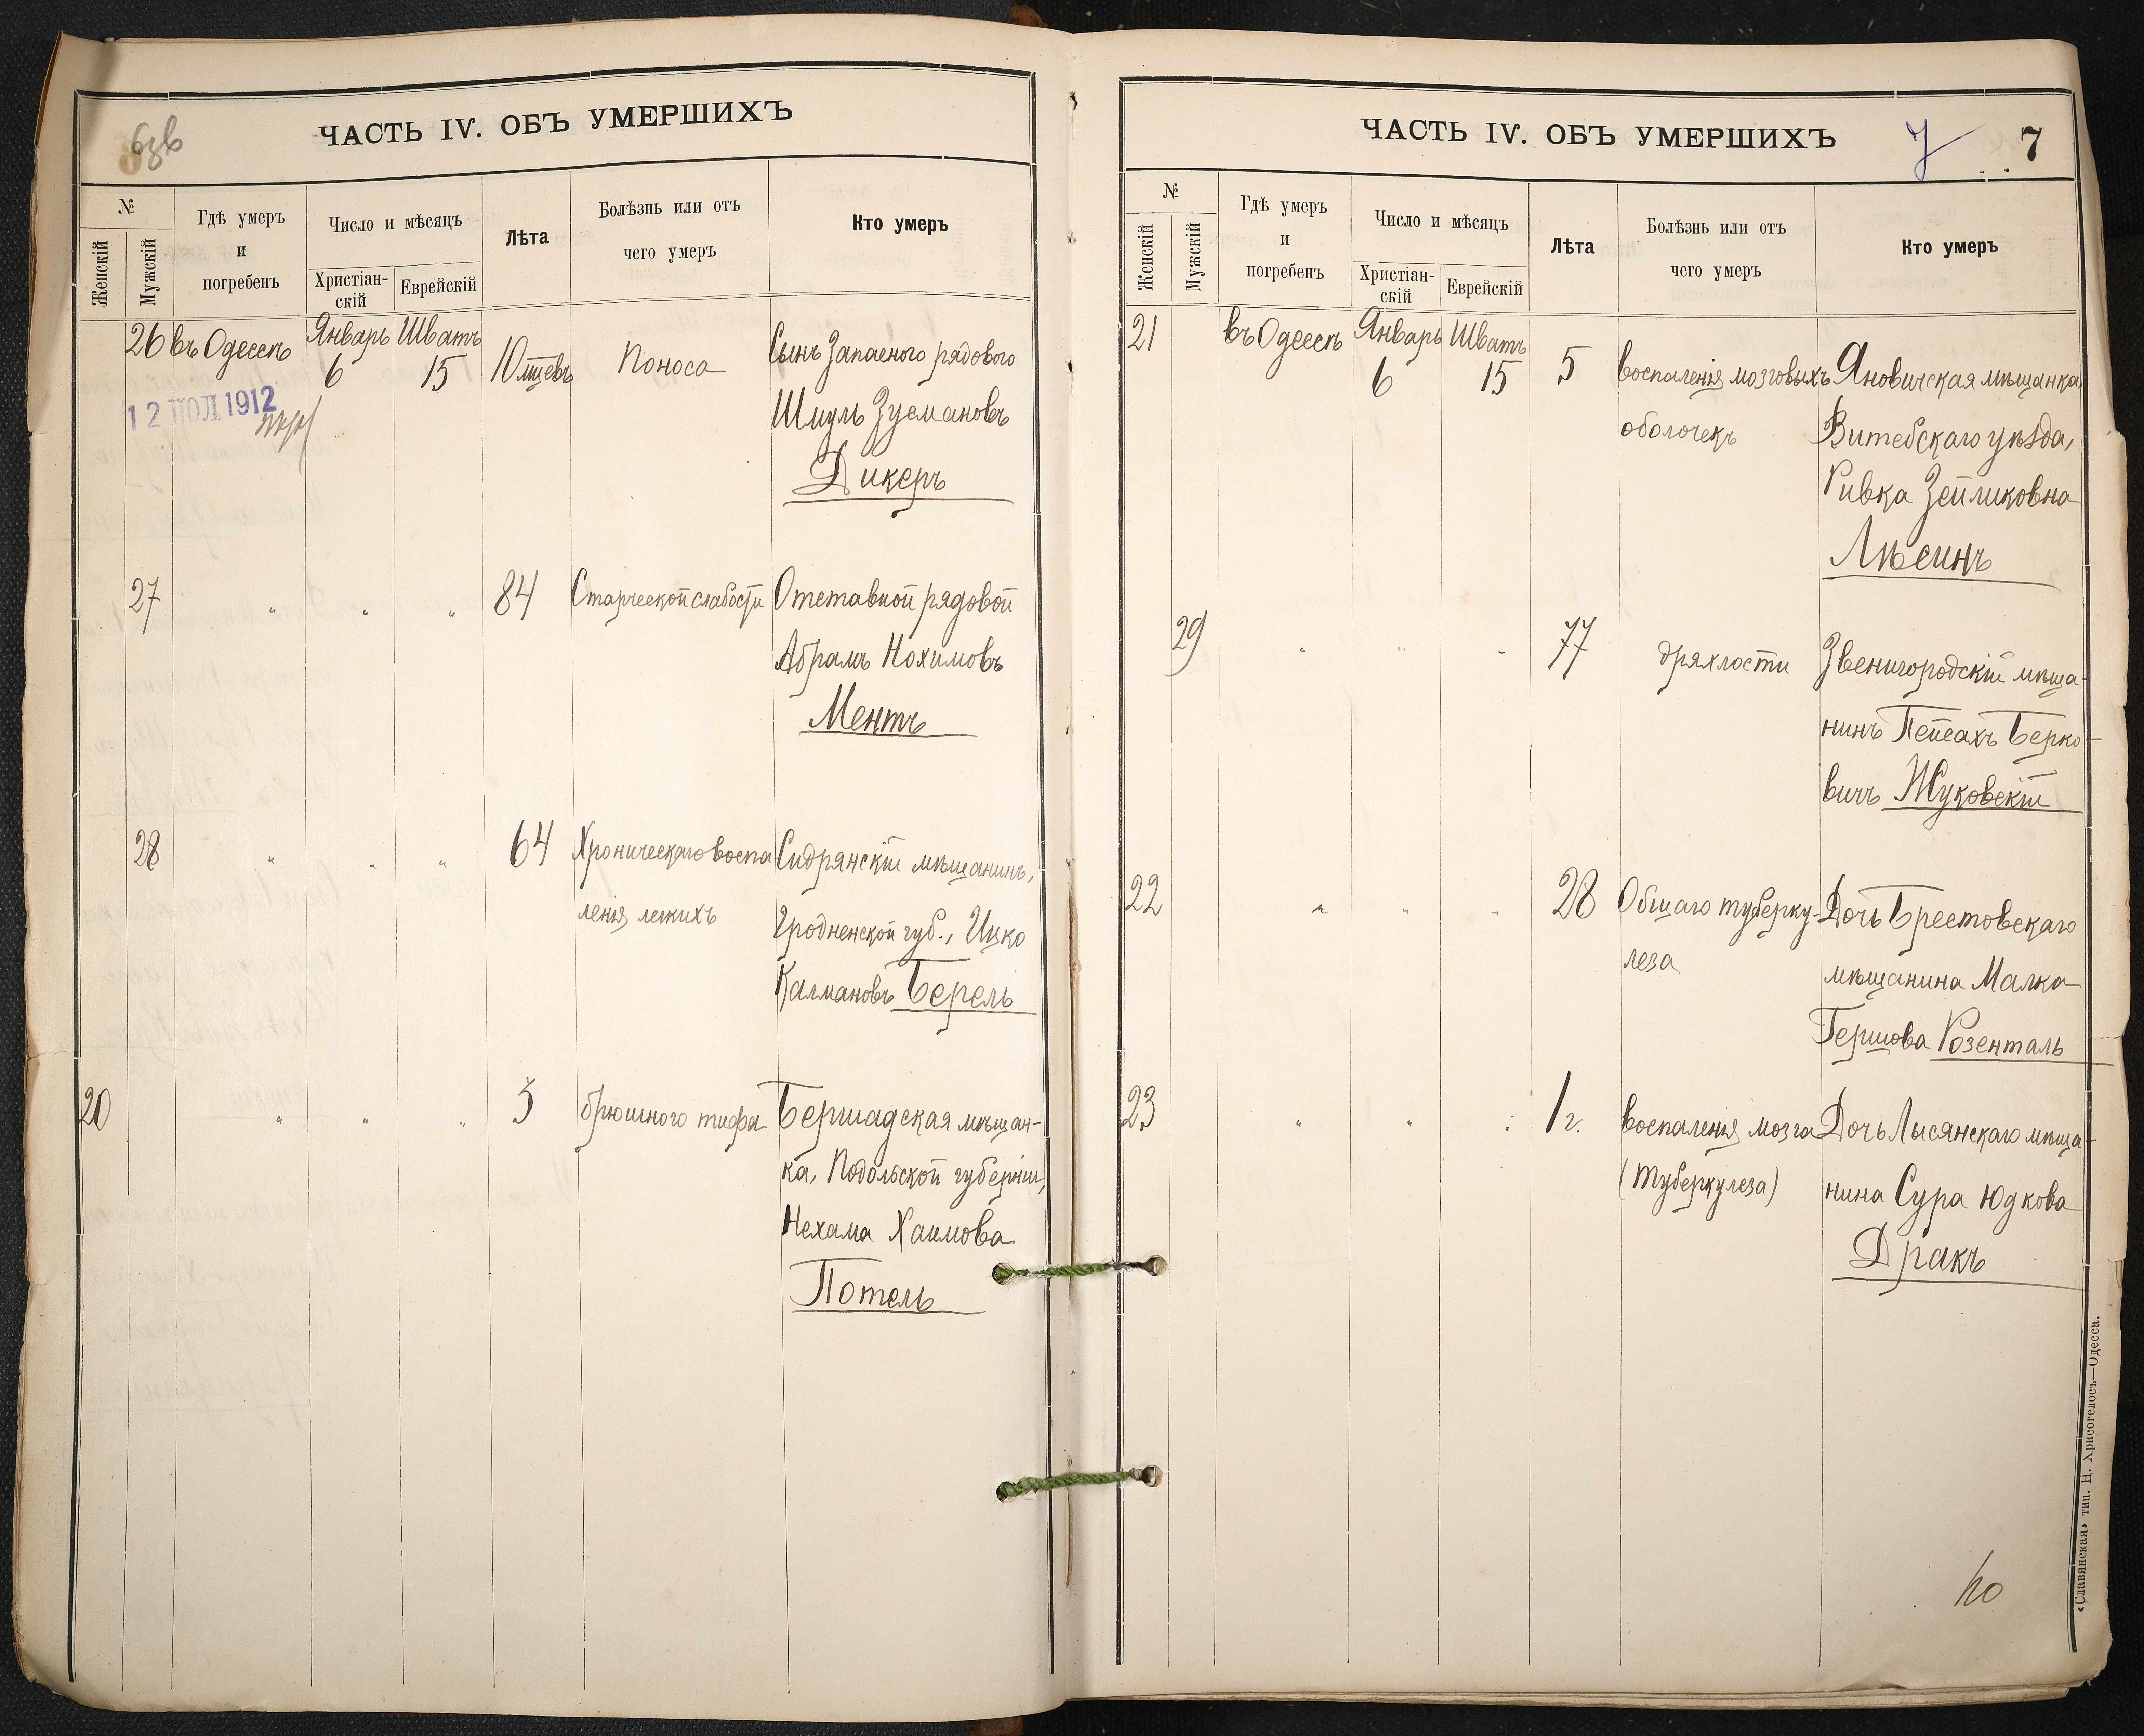 ЧАСТЬ IV. ОБЪ УМЕРШИХЪ
№
Женскій
Мужскій
Гдѣ умеръ
и
погребенъ
Число и мѣсяцъ
Христіан-
скій
Еврейскій
Лѣта
Болѣзнь или отъ
чего умеръ
Кто умеръ
26 въ Одессѣ Январь Шватъ
6 15 10 мцевъ Поноса Сынъ Запаснаго рядового
12 ІЮЛ 1912
Шмуль Зусмановъ
Дикеръ
27 " " " 84 Старческой слабости Отставной рядовой
Абрамъ Нохимовъ
Ментъ
28 " " " 64 Хроническаго воспа Сидрянскій мѣщанинъ,
ленія легкихъ Гродненской губ., Ицко
Калмановъ Берель
20 " " " 3 брюшного тифа Бершадская мѣщан-
ка, Подольской губерніи,
Нехама Хаимова
Потель
ЧАСТЬ IV. ОБЪ УМЕРШИХЪ 7 7
№
Женскій
Мужскій
Гдѣ умеръ
и
погребенъ
Число и мѣсяцъ
Христіан-
скій
Еврейскій
Лѣта
Болѣзнь или отъ
чего умеръ
Кто умеръ
21 въ Одессѣ Январь Шватъ
6 15 5 воспаленія мозговыхъ Яновичская мѣщанка
оболочекъ Витебскаго уѣзда,
Ривка Зейликовна
Лѣсинъ
29 " " " 77 дряхлости Звенигородскій мѣща-
нинъ Пейсахъ Берко-
вичъ Жуковскій
22 " " " 28 Общаго туберку- Дочь Брестовскаго
леза мѣщанина Малка
Гершова Розенталь
23 " " " 1 г. воспаленія мозга Дочь Лысянскаго мѣща-
(туберкулеза) нина Сура Юдкова
Дракъ
«Славянская» тип. Н. Хрисогелосъ—Одесса.